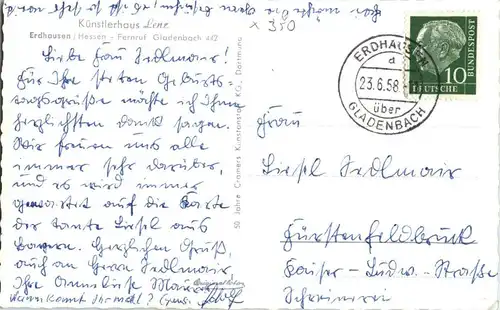 Künstlerhaus Lenz
Erdhausen / Hessen - Fernruf Gladenbach 442
x 350
Liebe Frau Sedlmair!
Für Ihre steten Geburts-
tagsgrüße möchte ich Ihnen
herzlichsten Dank sagen.
Wir freuen uns alle
immer sehr darüber,
und es wird immer
gewartet auf die Karte
der Tante Liesl aus
Bayern. Herzlichen Gruß,
auch an Herrn Sedlmair,
Ihre Annelise
wann kommt Ihr mal?
50 Jahre Cramers Kunstanstalt KG., Dortmund
ERDHAUSEN
a
23.6.58
über
GLADENBACH
10
DEUTSCHE
BUNDESPOST
Frau
Liesl Sedlmair
Fürstenfeldbruck
Kaiser-Ludw.-Straße
Schreinerei